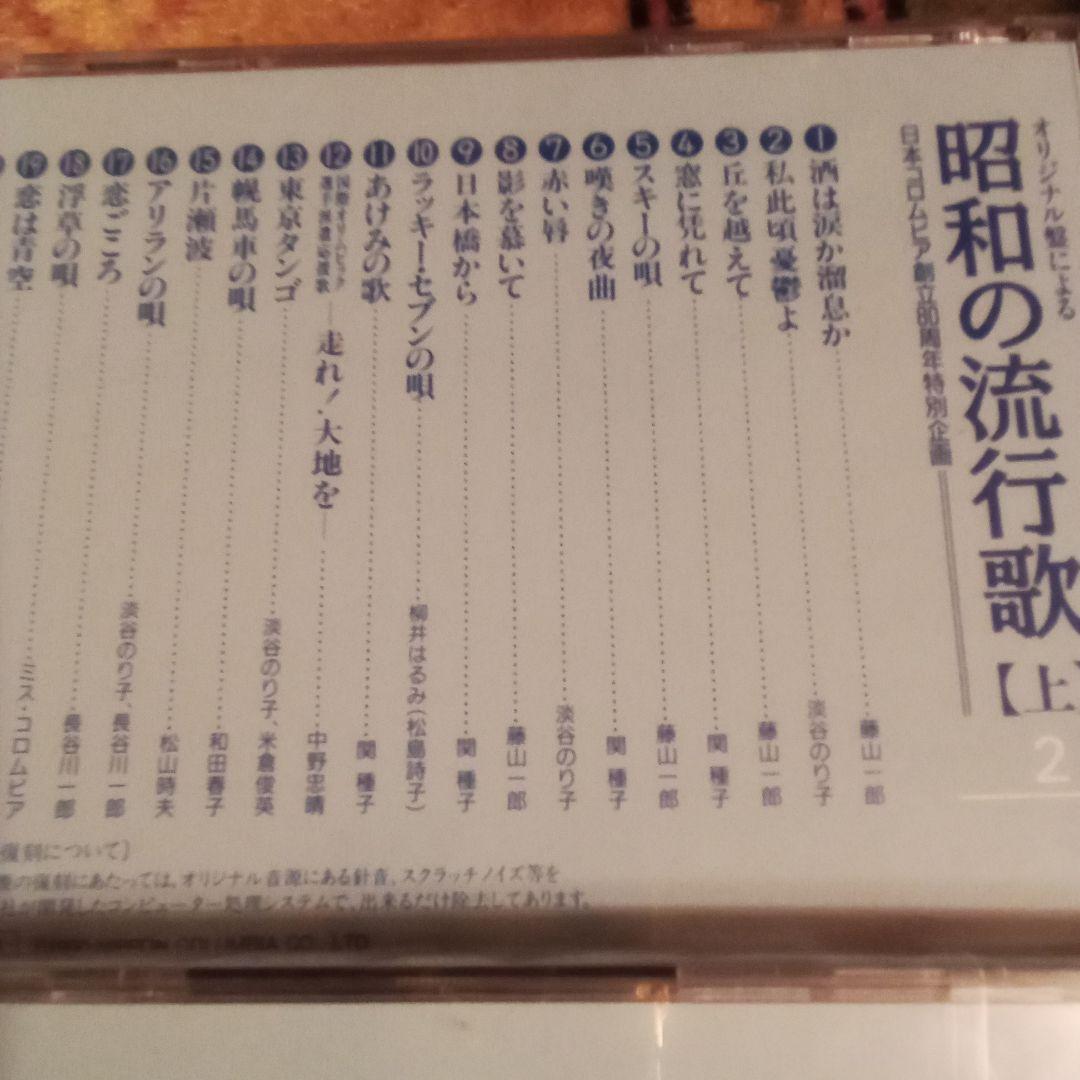 オリジナル盤による
昭和の流行歌【上】
2
日本コロムビア創立80周年特別企画
1 酒は涙か溜息か 藤山一郎
2 私此頃憂鬱よ 淡谷のり子
3 丘を越えて 藤山一郎
4 窓に凭れて 関 種子
5 スキーの唄 藤山一郎
6 嘆きの夜曲 関 種子
7 赤い唇 淡谷のり子
8 影を慕いて 藤山一郎
9 日本橋から 関 種子
10 ラッキー・セブンの唄 柳井はるみ(松島詩子)
11 あけみの歌 関 種子
12 国際オリムピック選手派遣応援歌 ―走れ!大地を― 中野忠晴
13 東京タンゴ 淡谷のり子、米倉俊英
14 幌馬車の唄 和田春子
15 片瀬波 松山時夫
16 アリランの唄 淡谷のり子、長谷川一郎
17 恋ごころ 長谷川一郎
18 浮草の唄 ミス・コロムビア
19 恋は青空
復刻について]
の復刻にあたっては、オリジナル音源にある針音、スクラッチノイズ等を
社が開発したコンピューター処理システムで、出来るだけ除去してあります。
NIPPON COLUMBIA CO., LTD